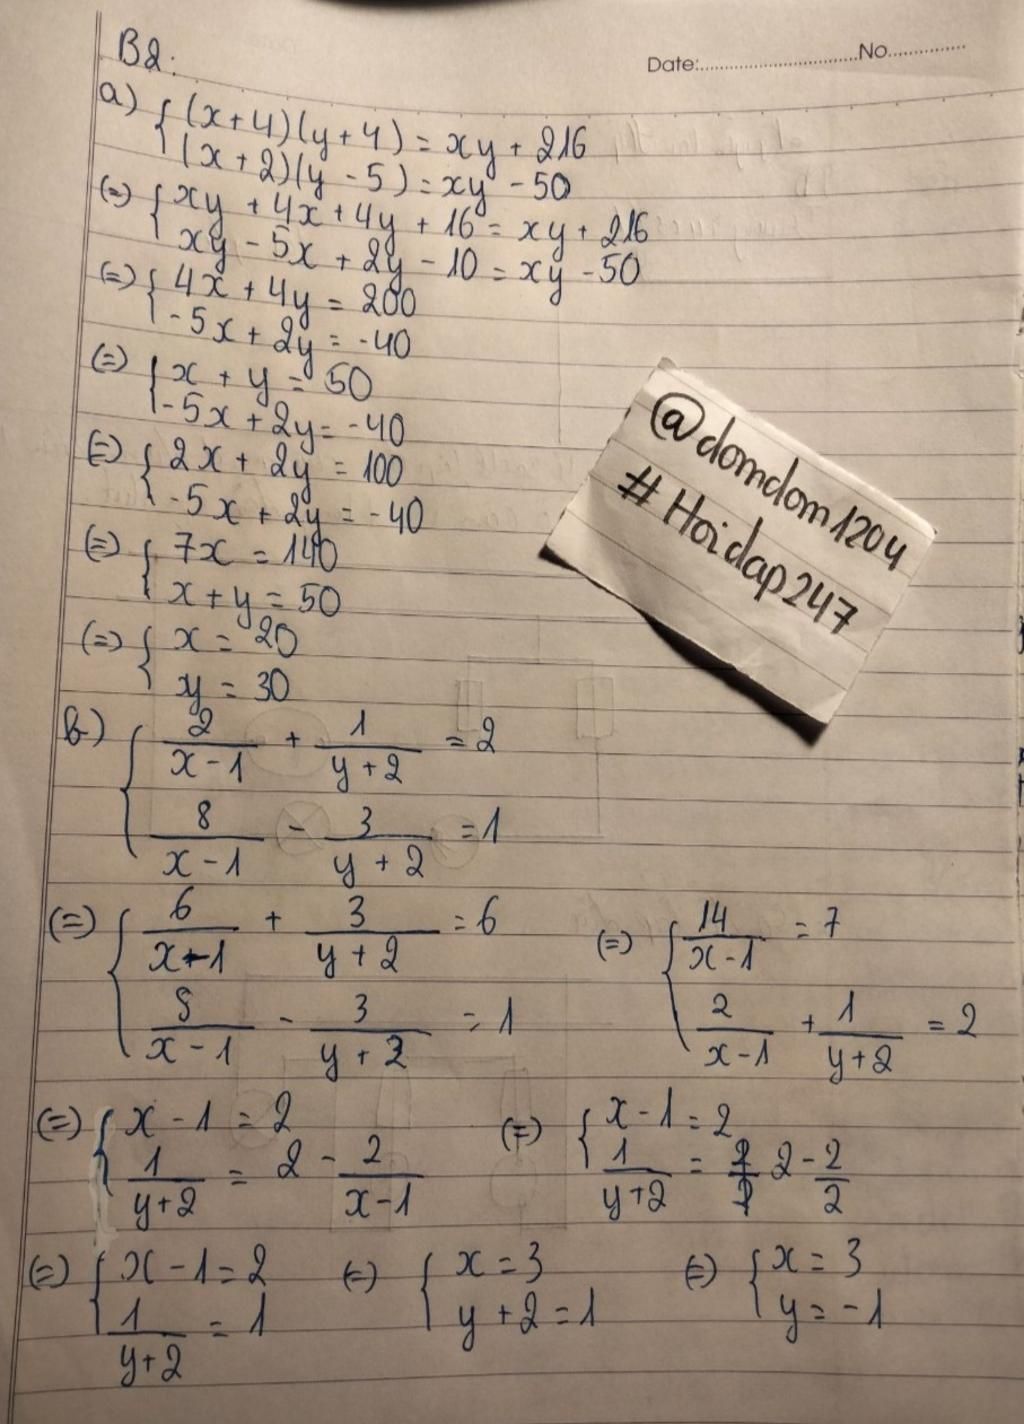 B2:
Date:..............................No..............
a) { (x+4)(y+4) = xy + 216
(x+2)(y-5) = xy - 50
(=) { xy + 4x + 4y + 16 = xy + 216
xy - 5x + 2y - 10 = xy - 50
(=) { 4x + 4y = 200
-5x + 2y = -40
(=) { x + y = 50
-5x + 2y = -40
(=) { 2x + 2y = 100
-5x + 2y = -40
(=) { 7x = 140
x + y = 50
(=) { x = 20
y = 30
@domdom1204
#Hoidap247
b) { 2/(x-1) + 1/(y+2) = 2
8/(x-1) - 3/(y+2) = 1
(=) { 6/(x-1) + 3/(y+2) = 6
8/(x-1) - 3/(y+2) = 1
(=) { 14/(x-1) = 7
2/(x-1) + 1/(y+2) = 2
(=) { x - 1 = 2
1/(y+2) = 2 - 2/(x-1)
(=) { x - 1 = 2
1/(y+2) = 2 - 2/2
(=) { x - 1 = 2
1/(y+2) = 1
(=) { x = 3
y + 2 = 1
(=) { x = 3
y = -1